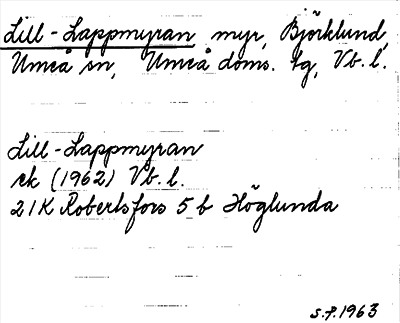 Lill-Lappmyran myr, Björklund,
Umeå sn, Umeå doms. tg, Vb. l.
Lill-Lappmyran
rk (1962) Vb. l.
21K Robertsfors 5 b Höglunda
S.P. 1963